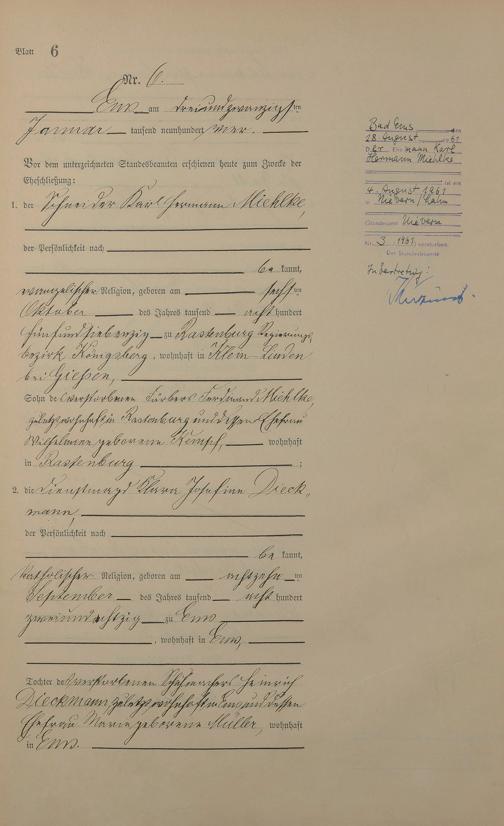 Blatt 6
Nr. 6.
Ems am dreiundzwanzigsten
Januar tausend neunhundert vier.
Vor dem unterzeichneten Standesbeamten erschienen heute zum Zwecke der
Eheschließung:
1. der Schneider Karl Hermann Miehlke,
der Persönlichkeit nach
bekannt,
evangelischer Religion, geboren am sechsten
Oktober des Jahres tausend achthundert
fünfundsiebenzig zu Rastenburg Regierungs
bezirk Königsberg, wohnhaft in Klein-Linden
bei Gießen,
Sohn des verstorbenen Färbers Ferdinand Miehlke,
zuletzt wohnhaft in Rastenburg und dessen Ehefrau
Wilhelmine geborene Kempf, wohnhaft
in Rastenburg ;
2. die Dienstmagd Klara Josefine Dieck-
mann,
der Persönlichkeit nach
bekannt,
katholischer Religion, geboren am achtzehnten
September des Jahres tausend achthundert
zweiundachtzig zu Ems
, wohnhaft in Ems,
Tochter des verstorbenen Schuhmachers Heinrich
Dieckmann, zuletzt wohnhaft in Ems und dessen
Ehefrau Marie geborene Müller, wohnhaft
in Ems.
Bad Ems
28. August 61
Der Ehemann Karl
Hermann Miehlke
ist am
4. August 1961
in Nievern/Lahn
Standesamt Nievern
Nr. 3 1961 verstorben.
Der Standesbeamte
In Vertretung: